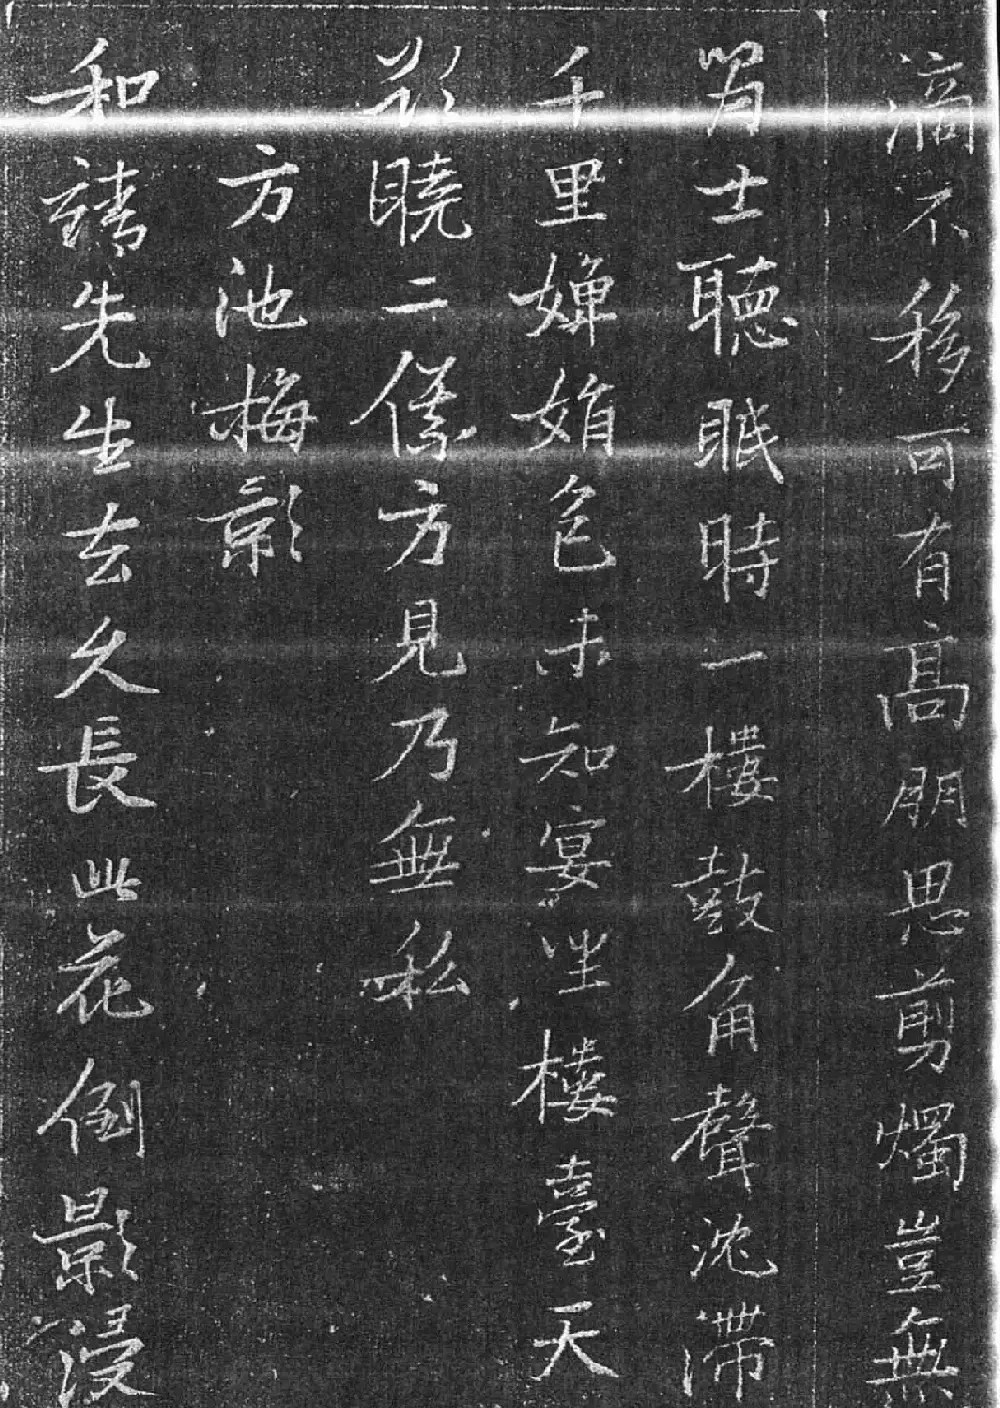 滴不移可有高朋思剪燭豈無
士聽眠時一樓鼓角聲沈滯
千里嬋娟色未知宴坐樓臺天
欲曉二儀方見乃無私
方池梅影
和靖先生去久長此花倒影浸